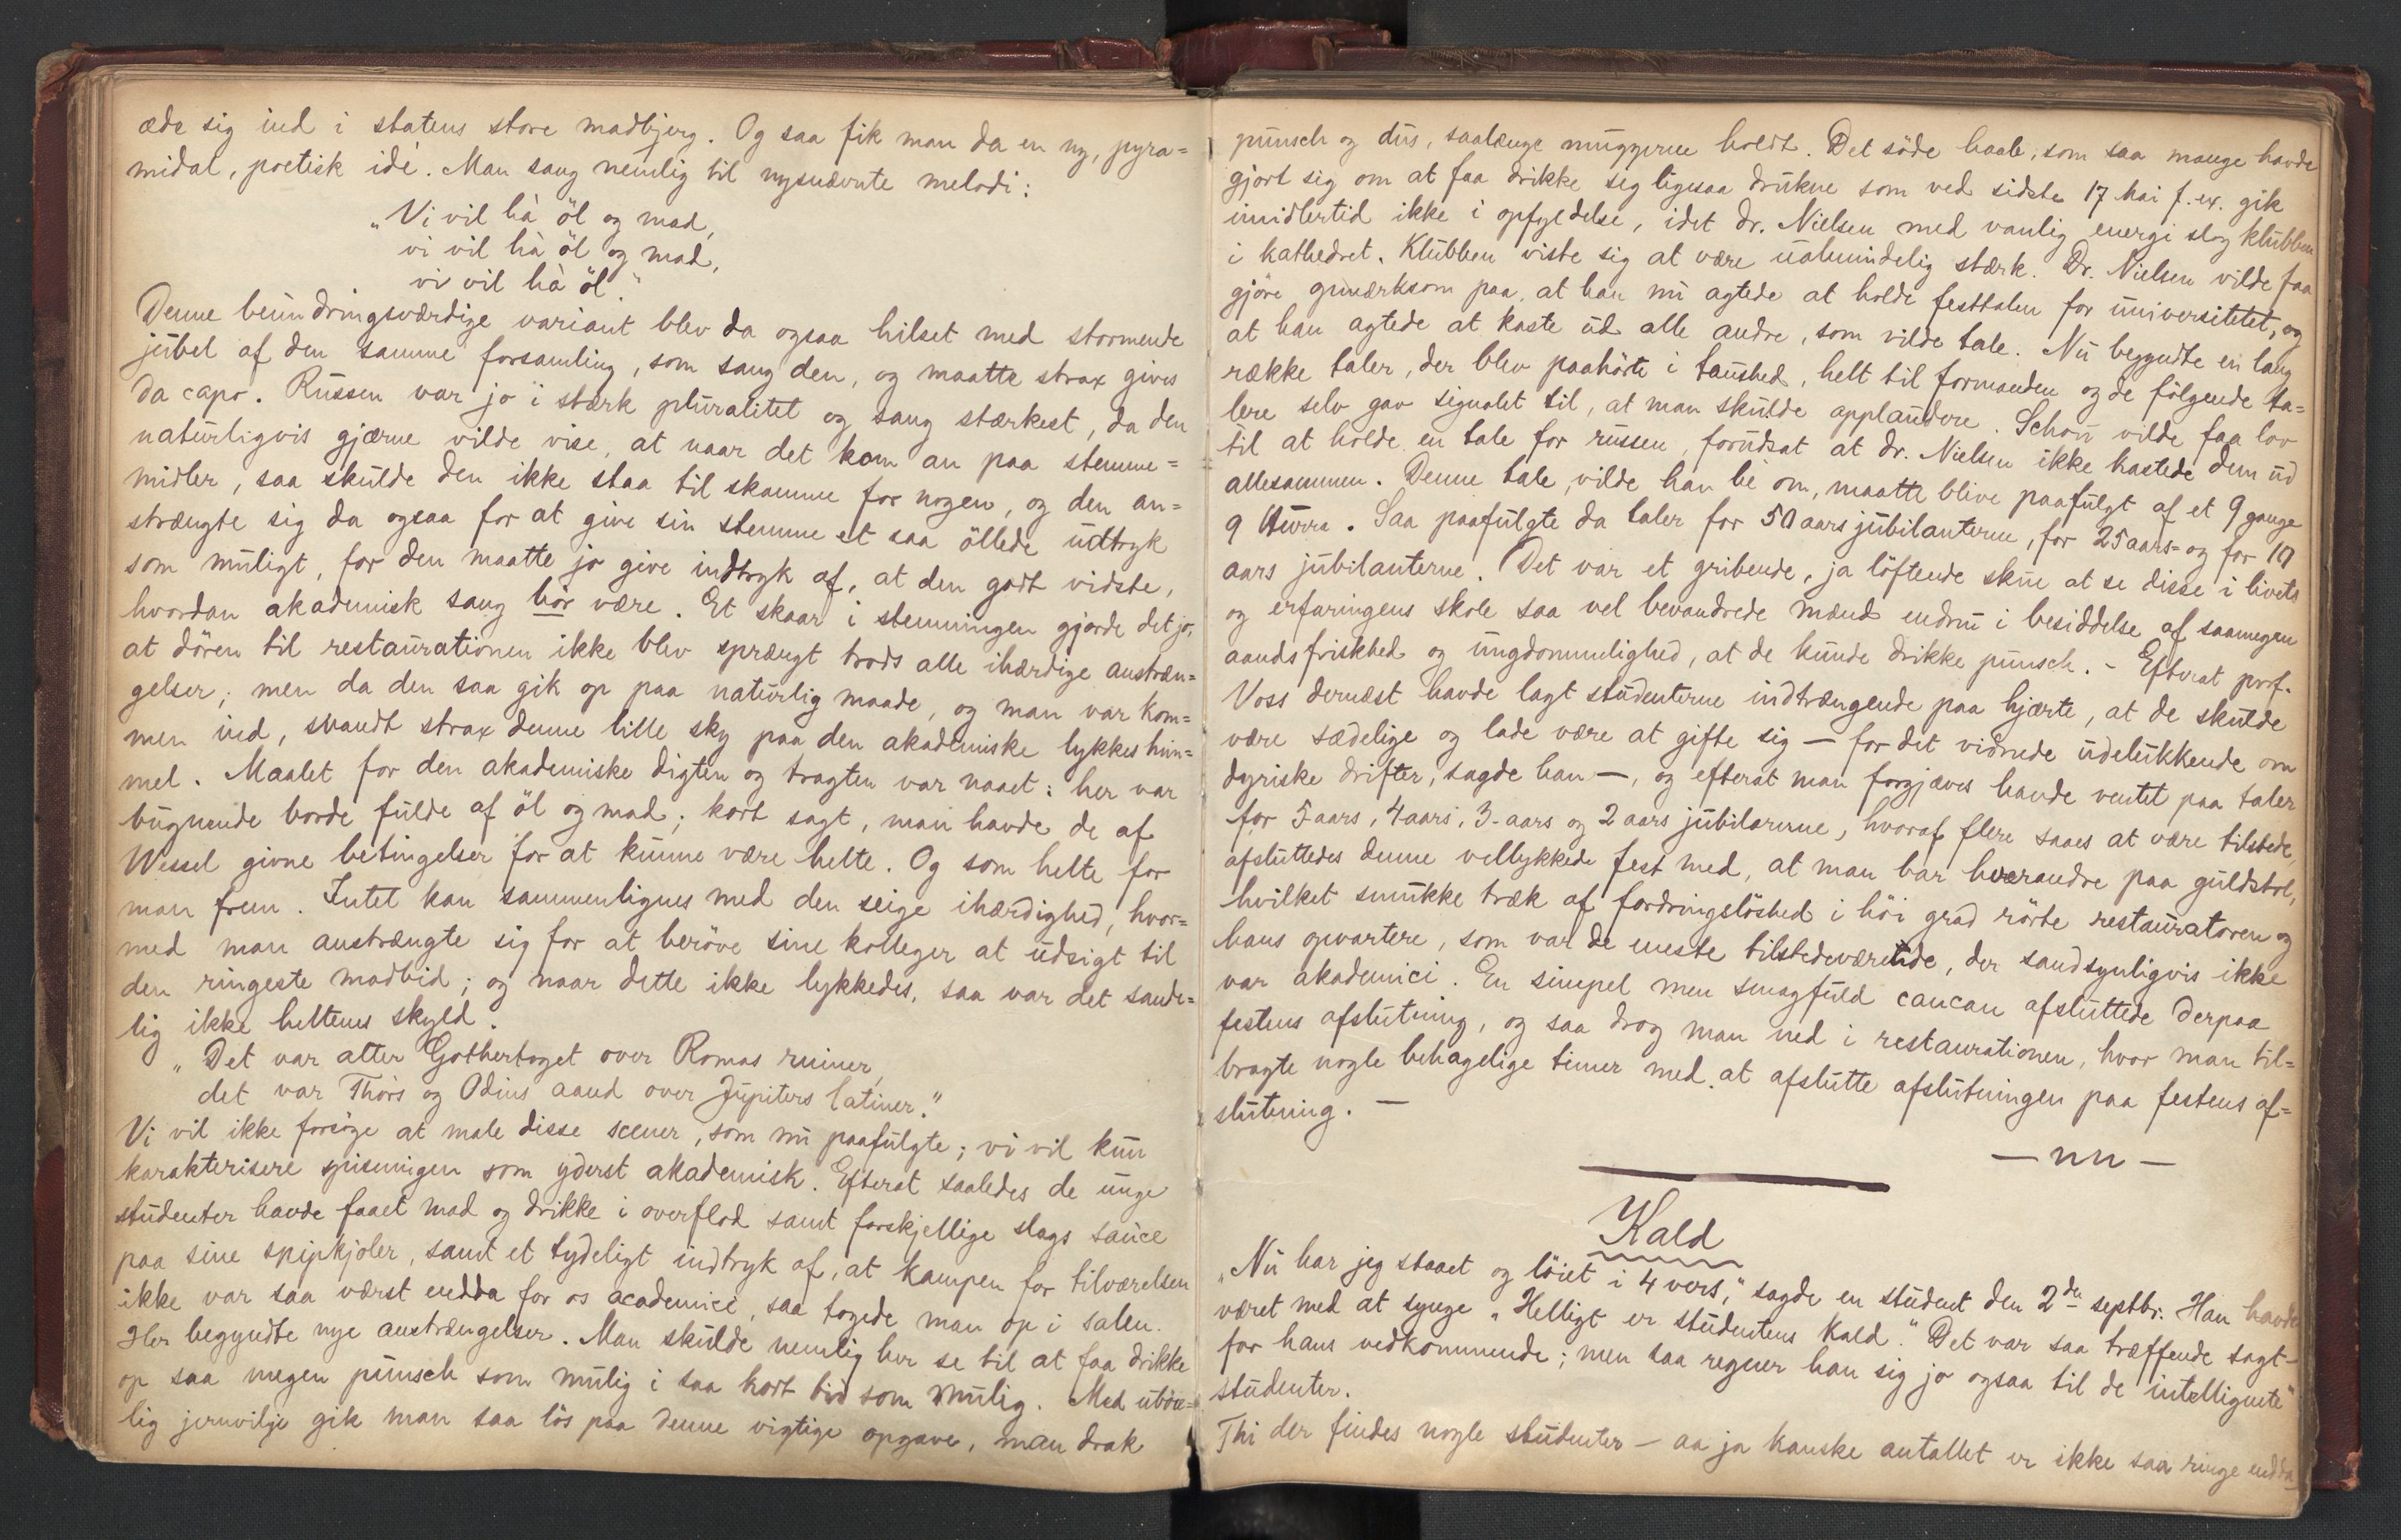 æde sig ind i statens store madbjerg. Og saa fik man da en ny, pyra=
midal, poetisk idé. Man sang nemlig til nysnævnte melodi:
„Vi vil ha̓ öl og mad,
vi vil ha̓ öl og mad,
vi vil ha̓ öl.“
Denne beundringsværdige variant blev da ogsaa hilset med stormende
jubel af den samme forsamling, som sang den, og maatte strax gives
da capo. Russen var jo i stærk pluralitet og sang stærkest, da den
naturligvis gjærne vilde vise, at naar det kom an paa stemme=
midler, saa skulde den ikke staa til skamme for nogen, og den an=
strængte sig da ogsaa for at give sin stemme et saa öllede udtryk
som muligt, for den maatte jo give indtryk af, at den godt vidste,
hvordan akademisk sang bör være. Et skaar i stemningen gjorde det jo,
at dören til restaurationen ikke blev sprængt trods alle ihærdige anstræn=
gelser; men da den saa gik op paa naturlig maade, og man var kom=
men ind, svandt strax denne lille sky paa den akademiske lykkes him=
mel. Maalet for den akademiske digten og tragten var naaet: her var
bugnende borde fulde af öl og mad; kort sagt, man havde de af
Wessel givne betingelser for at kunne være helte. Og som helte for
man frem. Intet kan sammenlignes med den seige ihærdighed, hvor=
med man anstrængte sig for at beröve sine kolleger at udsigt til
den ringeste madbid; og naar dette ikke lykkedes, saa var det sande=
lig ikke heltenes skyld.
„Det var atter Gothertoget over Romas ruiner,
det var Thors og Odins aand over Jupiters latiner.“
Vi vil ikke forsöge at male disse scener, som nu paafulgte; vi vil kun
karakterisere spisningen som yderst akademisk. Efterat saaledes de unge
studenter havde faaet mad og drikke i overflod samt forskjellige slags sauce
paa sine spipkjoler, samt et tydeligt indtryk af, at kampen for tilværelsen
ikke var saa værst endda for os academici, saa togede man op i salen.
Her begyndte nye anstrængelser. Man skulde nemlig her se til at faa drikke
op saa megen punsch som mulig i saa kort tid som mulig. Med uböie=
lig jernvilje gik man saa lös paa denne vigtige opgave, man drak
punsch og dus, saalænge muggerne holdt. Det söde haab, som saa mange havde
gjort sig om at faa drikke sig ligesaa drukne som ved sidste 17 Mai f. ex. gik
imidlertid ikke i opfyldelse, idet dr. Nielsen med vanlig energi slog klubben
i kathedret. Klubben viste sig at være ualmindelig stærk. Dr. Nielsen vilde faa
gjöre opmærksom paa, at han nu agtede at holde festtalen for universitetet, og
at han agtede at kaste ud alle andre, som vilde tale. Nu begyndte en lang
række taler, der blev paahörte i taushed, helt til formanden og de fölgende ta=
lere selv gav signalet til, at man skulde applaudere. Schou vilde faa lov
til at holde en tale for russen, forudsat at dr. Nielsen ikke kastede dem ud
allesammen. Denne tale, vilde han be̓ om, maatte blive paafulgt af et 9 gange
9 Hurra. Saa paafulgte da taler for 50 aars jubilanterne, for 25 aars= og for 10
aars jubilanterne. Det var et gribende, ja löftende skue at se disse i livets
og erfaringens skole saa vel bevandrede mænd endnu i besiddelse af saamegen
aandsfriskhed og ungdommelighed, at de kunde drikke punsch. – Efterat prof.
Voss dernæst havde lagt studenterne indtrængende paa hjærte, at de skulde
være sædelige og lade være at gifte sig – for det vidnede udelukkende om
dyriske drifter, sagde han –, og efterat man forgjæves havde ventet paa taler
for 5 aars, 4 aars, 3-aars og 2 aars jubilarerne, hvoraf flere saaes at være tilstede,
afsluttedes denne vellykkede fest med, at man bar hverandre paa guldstol,
hvilket smukke træk af fordringslöshed i höi grad rörte restauratören og
hans opvartere, som var de eneste tilstedeværende, der sandsynligvis ikke
var akademici. En simpel men smagfuld cancan afsluttede derpaa
festens afslutning, og saa drog man ned i restaurationen, hvor man til=
bragte nogle behagelige timer med at afslutte afslutningen paa festens af=
slutning. –
– nn –
Kald
„Nu har jeg staaet og löiet i 4 vers,“ sagde en student den 2den septbr. Han havde
været med at synge „Helligt er studentens kald.“ Det var saa træffende sagt –
for hans vedkommende; men saa regner han sig jo ogsaa til de „intelligente“
studenter.
Thi der findes nogle studenter – aa ja kanske antallet er ikke saa ringe endda –